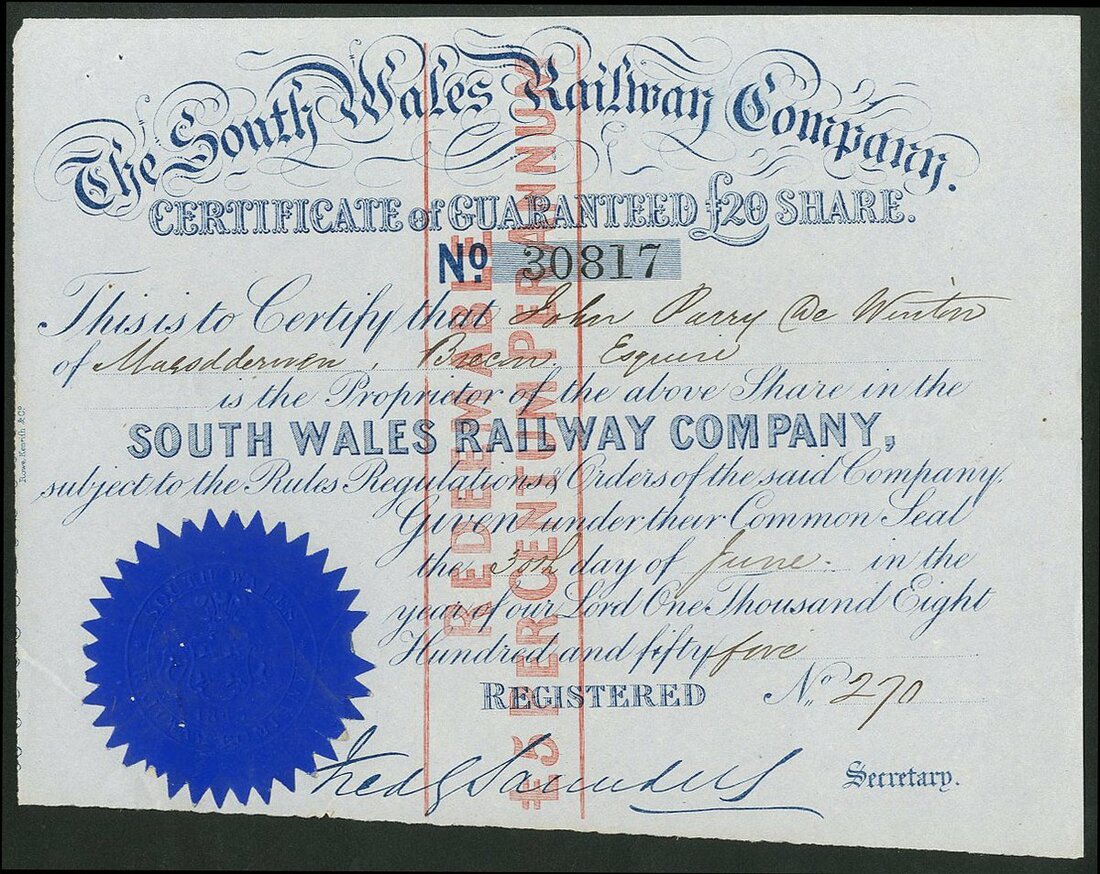 The South Wales Railway Company.
CERTIFICATE of GUARANTEED £20 SHARE.
No. 30817
This is to Certify that John Parry De Winton
of Maesdderwen, Brecon Esquire
is the Proprietor of the above Share in the
SOUTH WALES RAILWAY COMPANY,
subject to the Rules Regulations & Orders of the said Company.
Given under their Common Seal
the 30th day of June. in the
year of our Lord One Thousand Eight
Hundred and fifty five
REGISTERED No. 270
Fred G Saunders
Secretary.
REDEEMABLE
£5 PER CENTUM PER ANNUM
SOUTH WALES